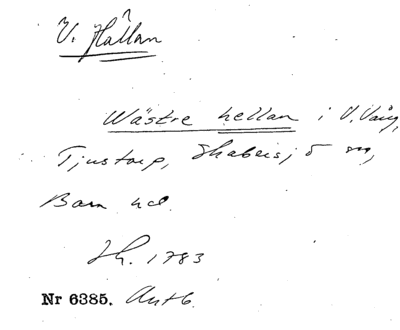 V. Hållan
Wästre hellan i V. Vång,
Tjustorp, Skabersjö sn,
Bara hd.
Jh. 1783
Nr 6385. Antb.